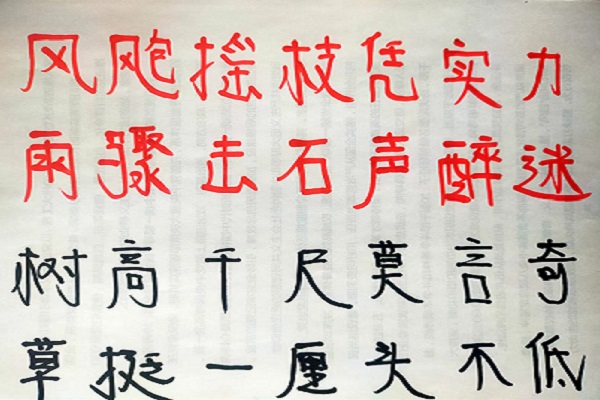 风飑摇枝凭实力
雨骤击石声醉迷
树高千尺莫言奇
草挺一厘头不低